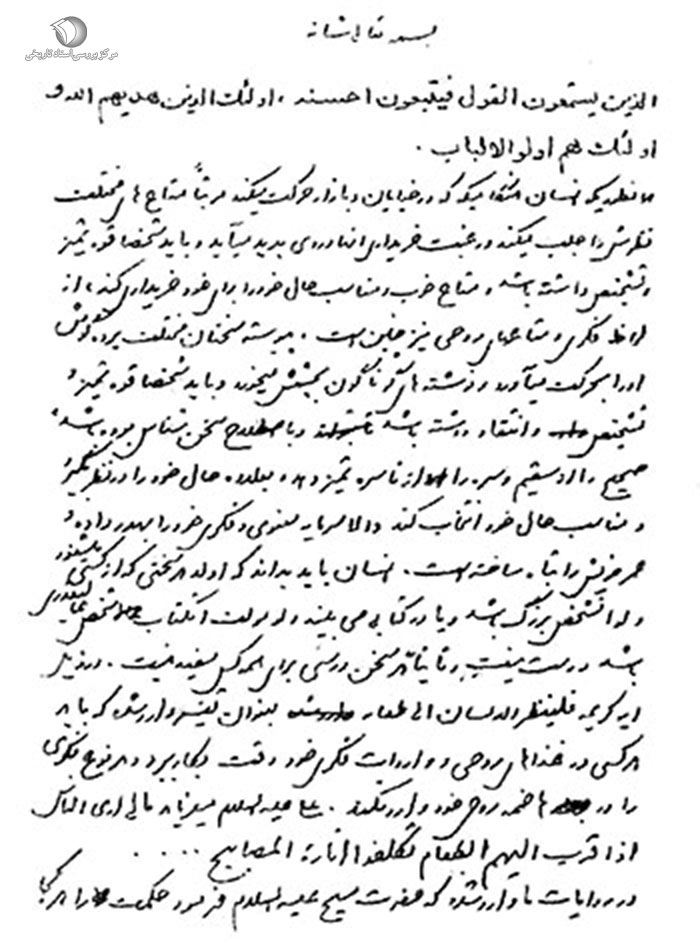 مرکز بررسی اسناد تاریخی
بسمه تعالی شانه
الذین یستمعون القول فیتبعون احسنه، اولئک الذین هدیهم الله و
اولئک هم اولوالالباب.
همانطوریکه انسان هنگامیکه در خیابان و بازار حرکت میکند مرتباً متاع های مختلف
نظرش را جلب میکند و رغبت خریداری آنها در وی پدید میآید و باید شخصا قوه تمیز
و تشخیص داشته باشد و متاع خوب و مناسب حال خود را برای خود خریداری کند، از
لحاظ فکری و متاعهای روحی نیز چنین است. پیوسته سخنان مختلف پرده گوش
او را بحرکت میآورد و نوشته های گوناگون بچشمش میخورد و باید شخصا قوه تمیز و
تشخیص و انتقاد داشته باشد و با صطلاح سخن شناس بوده باشد،
صحیح را از سقیم و سره را از ناسره تمیز دهد و بعلاوه حال خود را در نظر بگیرد
و مناسب حال خود انتخاب کند والا سرمایه معنوی و فکری خود را بهدر داده و
عمر خویش را تباه ساخته است. انسان باید بداند که اولا هر سخنی که از کسی میشنود
ولو آنشخص بزرگ باشد و یا در کتابی می بیند ولو مولف آنکتاب شخص
باشد درست نیست و ثانیا هر سخن درستی برای همه کس مفید نیست. در ذیل
آیه کریمه فلینظر الانسان الی طعامه بعنوان تفسیر وارد شده که باید
هر کسی در غذاهای روحی و واردات فکری خود دقت بکار برد و هر نوع فکری
را در هاضمه روحی خود وارد نکند. علی علیه السلام میفرماید مالی اری الناس
اذا قرب الیهم الطعام تکلفوا انارة المصابیح ....
در روایات ما وارد شده که حضرت مسیح علیه السلام فرمود حکمت را هر کجا